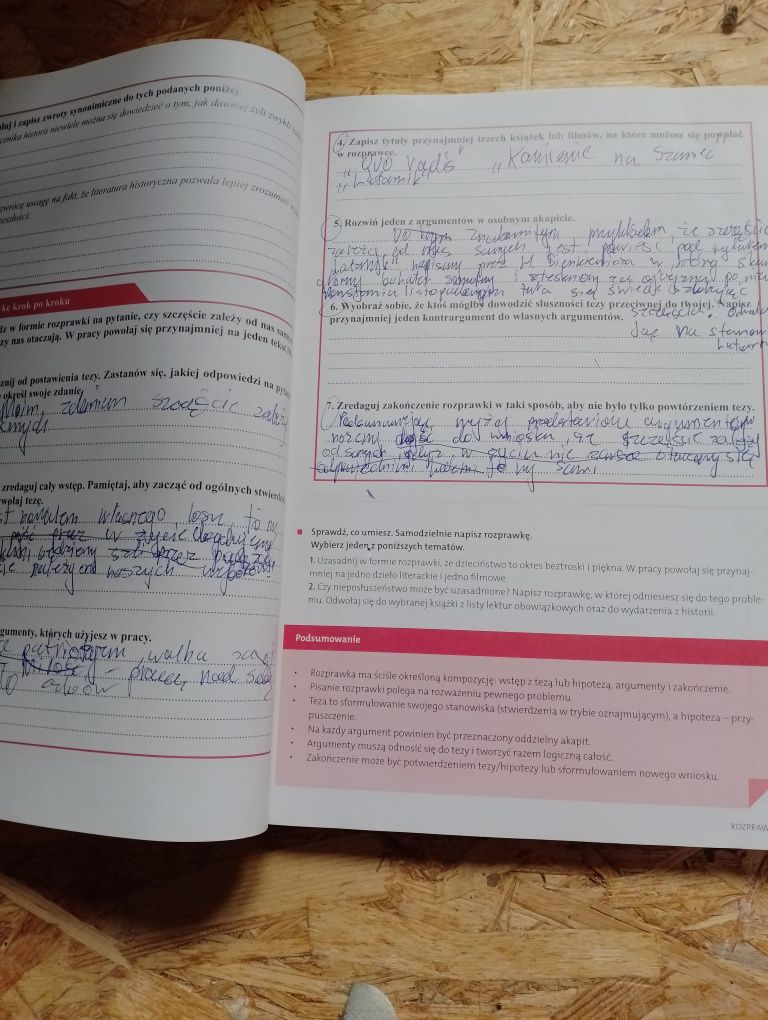 uj i zapisz zwroty synonimiczne do tych podanych poniżej.
cznika historii niewiele można się dowiedzieć o tym, jak dawniej żyli zwykli
uwagę na fakt, że literatura historyczna pozwala lepiej zrozumieć
krok po kroku
dz w formie rozprawki na pytanie, czy szczęście zależy od nas
nas otaczają. W pracy powołaj się przynajmniej na jeden
znij od postawienia tezy. Zastanów się, jakiej odpowiedzi na
określ swoje zdanie.
Moim zdaniem szczęście zależy
zredaguj cały wstęp. Pamiętaj, aby zacząć od ogólnych
wołaj tezę.
kowalem własnego losu, to
w życie
zależy od naszych
gumenty, których użyjesz w pracy.
patriotyzm, walka
miłość – praca nad
4. Zapisz tytuły przynajmniej trzech książek lub filmów, na które możesz się powołać
w rozprawce.
„Quo vadis" „Kamienie na Szaniec
„Latarnik"
5. Rozwiń jeden z argumentów w osobnym akapicie.
Znakomitym przykładem, że szczęście
zależy od nas samych jest powieść pod tytułem
Latarnik napisany przez H Sienkiewicza w której
bohater samotny i stęskniony za ojczyzną po
tuła się świecie
6. Wyobraź sobie, że ktoś mógłby dowodzić słuszności tezy przeciwnej do twojej. Napisz
przynajmniej jeden kontrargument do własnych argumentów.
szczęścia.
na
7. Zredaguj zakończenie rozprawki w taki sposób, aby nie było tylko powtórzeniem tezy.
Podsumowując wyżej przedstawione argumenty
możemy dojść do wniosku, że szczęście zależy
od samych, gdyż w życiu nie zawsze otaczamy się
odpowiednimi ludźmi to my sami
Sprawdź, co umiesz. Samodzielnie napisz rozprawkę.
Wybierz jeden z poniższych tematów.
1. Uzasadnij w formie rozprawki, że dzieciństwo to okres beztroski i piękna. W pracy powołaj się przynaj-
mniej na jedno dzieło literackie i jedno filmowe.
2. Czy nieposłuszeństwo może być uzasadnione? Napisz rozprawkę, w której odniesiesz się do tego proble-
mu. Odwołaj się do wybranej książki z listy lektur obowiązkowych oraz do wydarzenia z historii.
Podsumowanie
• Rozprawka ma ściśle określoną kompozycję: wstęp z tezą lub hipotezą, argumenty i zakończenie.
• Pisanie rozprawki polega na rozważaniu pewnego problemu.
• Teza to sformułowanie swojego stanowiska (stwierdzenia w trybie oznajmującym), a hipoteza – przy-
puszczenie.
• Na każdy argument powinien być przeznaczony oddzielny akapit.
• Argumenty muszą odnosić się do tezy i tworzyć razem logiczną całość.
• Zakończenie może być potwierdzeniem tezy/hipotezy lub sformułowaniem nowego wniosku.
ROZPRAW